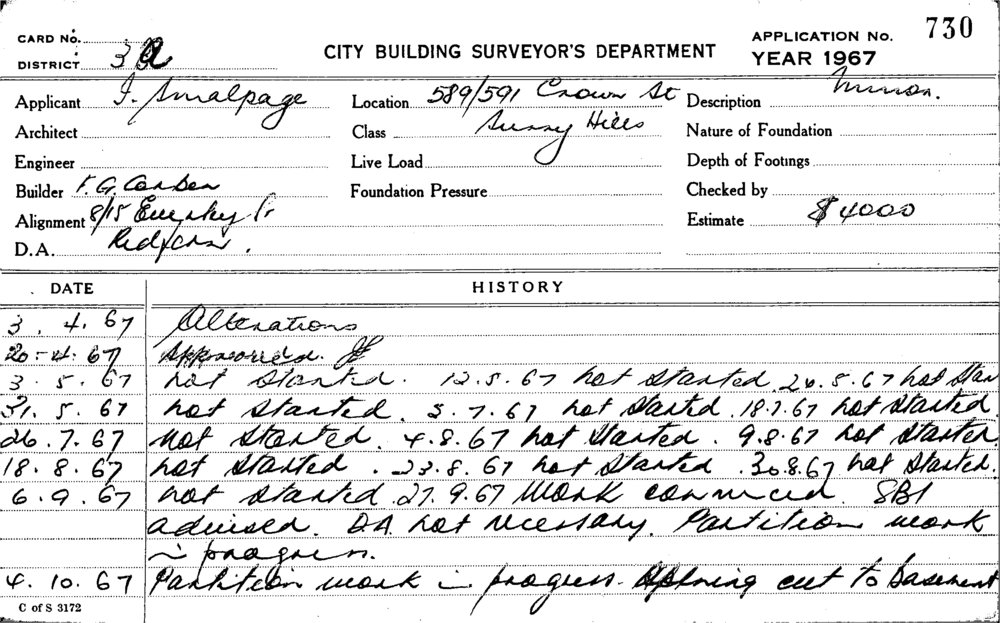 CARD No.
DISTRICT 3 A
CITY BUILDING SURVEYOR'S DEPARTMENT
APPLICATION No. 730
YEAR 1967
Applicant I. Smalpage
Location 589/591 Crown St
Description Minor.
Architect
Class Surry Hills
Nature of Foundation
Engineer
Live Load
Depth of Footings
Builder F. G. Corben
Foundation Pressure
Checked by
Alignment 8/15
Estimate $4000
D.A. Redfern.
DATE HISTORY
3. 4. 67 Alterations
20-4. 67 Approved.
3. 5. 67 not started. 12.5.67 not started. 26.5.67 not star
31. 5. 67 not started. 5.7.67 not started. 18.7.67 not started
26. 7. 67 not started. 4.8.67 not started. 9.8.67 not started
18. 8. 67 not started. 23.8.67 not started. 30.8.67 not started.
6. 9. 67 not started. 27.9.67 Work commenced. SBI
advised. DA not necessary. Partition work
in progress.
4. 10. 67 Partition work in progress. Opening cut to basement
C of S 3172